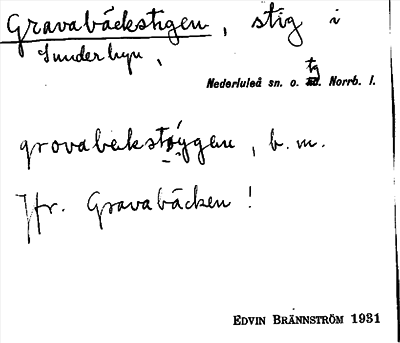 Gravabäckstigen, stig i
Sunderbyn,
Nederluleå sn. o. tg. Norrb. l.
grovabekstøýgen, b.m.
Jfr. Gravabäcken!
EDVIN BRÄNNSTRÖM 1931